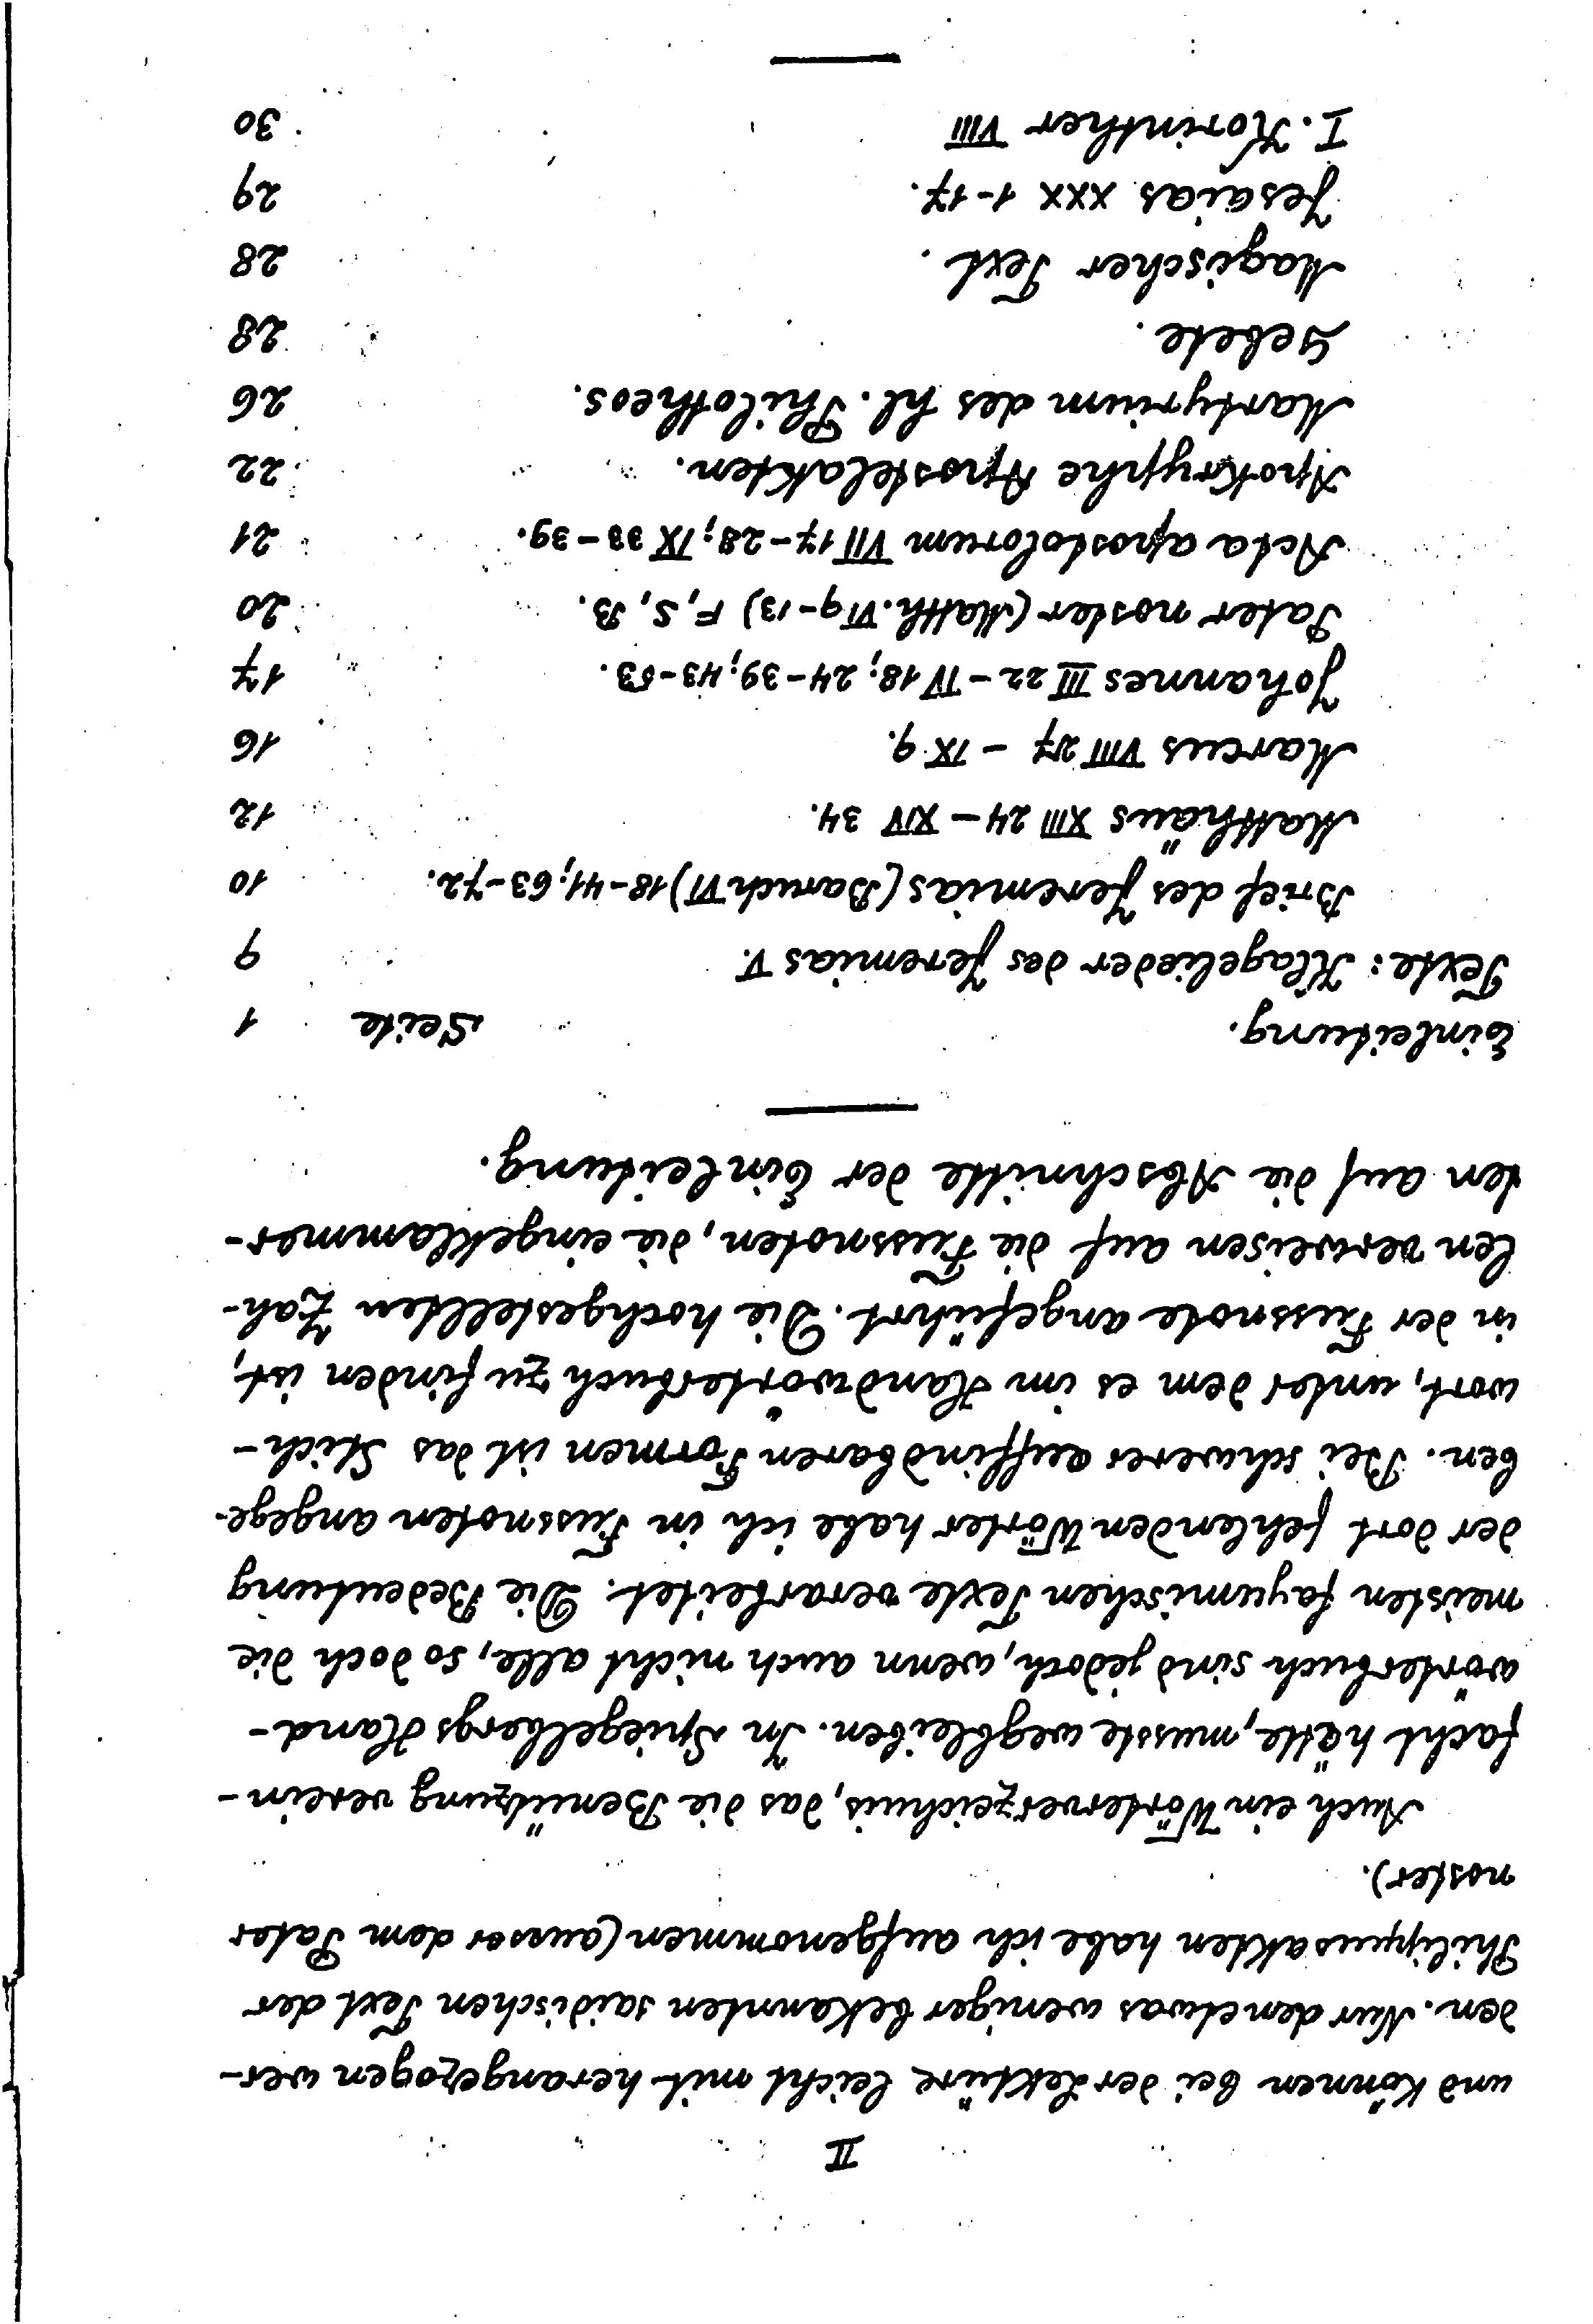 II
und können bei der Lektüre leicht mit herangezogen wer-
den. Nur den etwas weniger bekannten saidischen Text der
Philippusakten habe ich aufgenommen (ausser dem Pater
noster).
Auch ein Wörterverzeichnis, das die Benützung verein-
facht hätte, musste wegbleiben. In Spiegelbergs Hand-
wörterbuch sind jedoch, wenn auch nicht alle, so doch die
meisten fayumischen Texte verarbeitet. Die Bedeutung
der dort fehlenden Wörter habe ich in Fussnoten angege-
ben. Bei schwerer auffindbaren Formen ist das Stich-
wort, unter dem es im Handwörterbuch zu finden ist,
in der Fussnote angeführt. Die hochgestellten Zah-
len verweisen auf die Fussnoten, die eingeklammer-
ten auf die Abschnitte der Einleitung.
Einleitung. Seite 1
Texte: Klagelieder des Jeremias V. 9
Brief des Jeremias (Baruch VI) 18-41; 63-72. 10
Matthäus XIII 24 - XIV 34. 12
Marcus VIII 27 - IX 9. 16
Johannes III 22 - IV 18; 24-39; 43-53. 17
Pater noster (Matth. VI 9-13) F, S, B. 20
Acta apostolorum VII 17-28; IX 33-39. 21
Apokryphe Apostelakten. 22
Martyrium des hl. Philotheos. 26
Gebete. 28
Magischer Text. 28
Jesaias XXX 1-17. 29
I. Korinther VIII 30